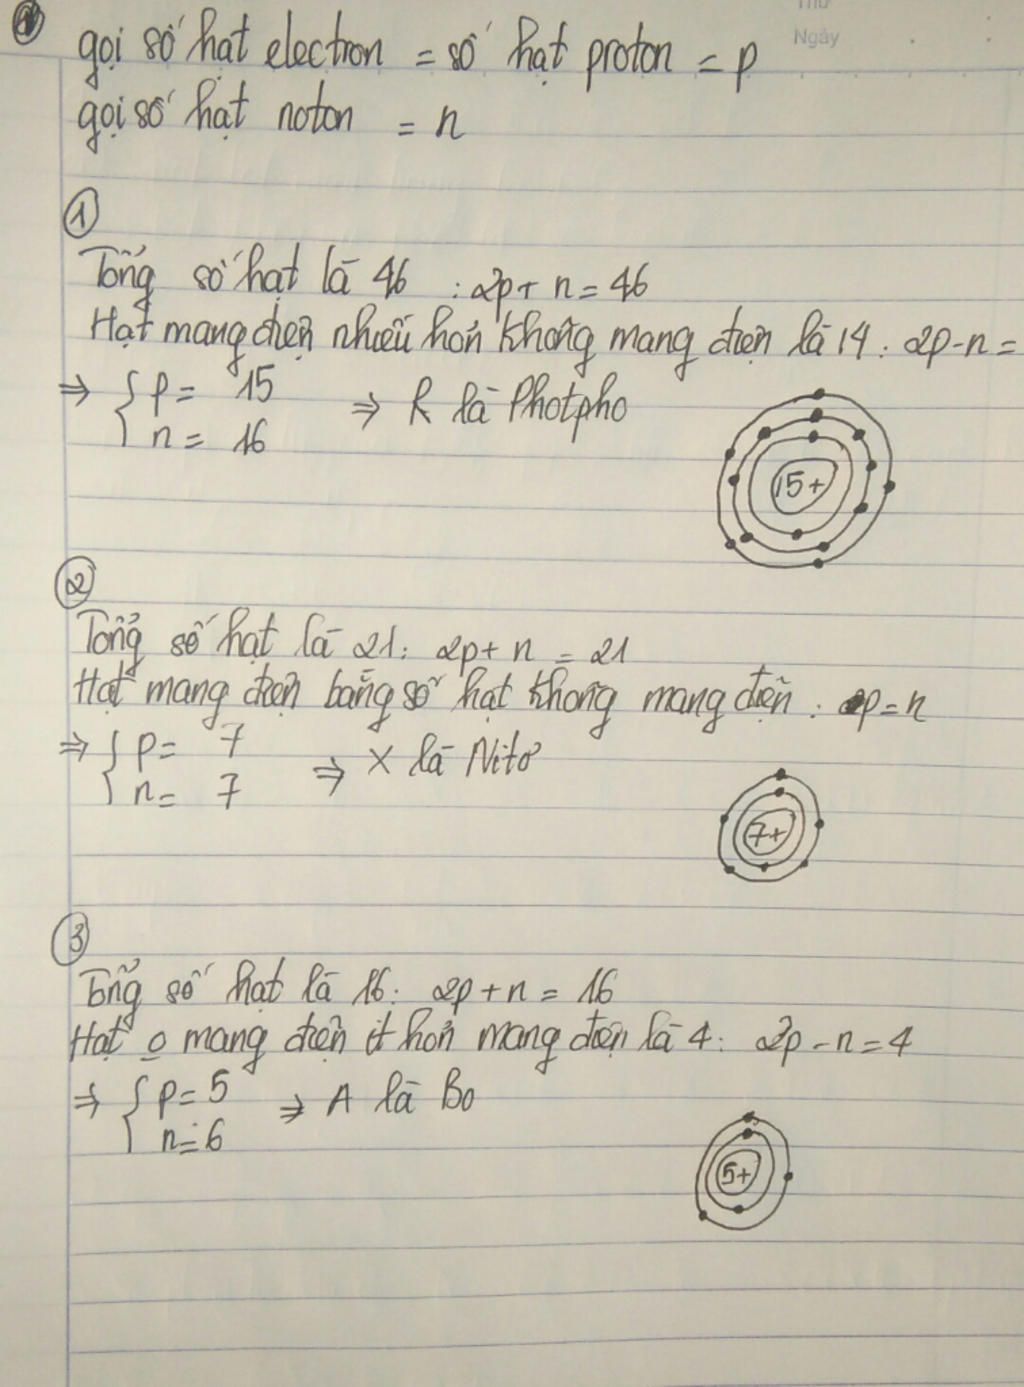 Thứ
Ngày
gọi số hạt electron = số hạt proton = p
gọi số hạt noton = n
1
Tổng số hạt là 46 : 2p + n = 46
Hạt mang điện nhiều hơn không mang điện là 14 : 2p - n =
⇒ { p = 15
n = 16
⇒ R là Photpho
15+
2
Tổng số hạt là 21 : 2p + n = 21
Hạt mang điện bằng số hạt không mang điện : p = n
⇒ { p = 7
n = 7
⇒ X là Nitơ
7+
3
Tổng số hạt là 16 : 2p + n = 16
Hạt o mang điện ít hơn mang điện là 4 : 2p - n = 4
⇒ { p = 5
n = 6
⇒ A là Bo
5+